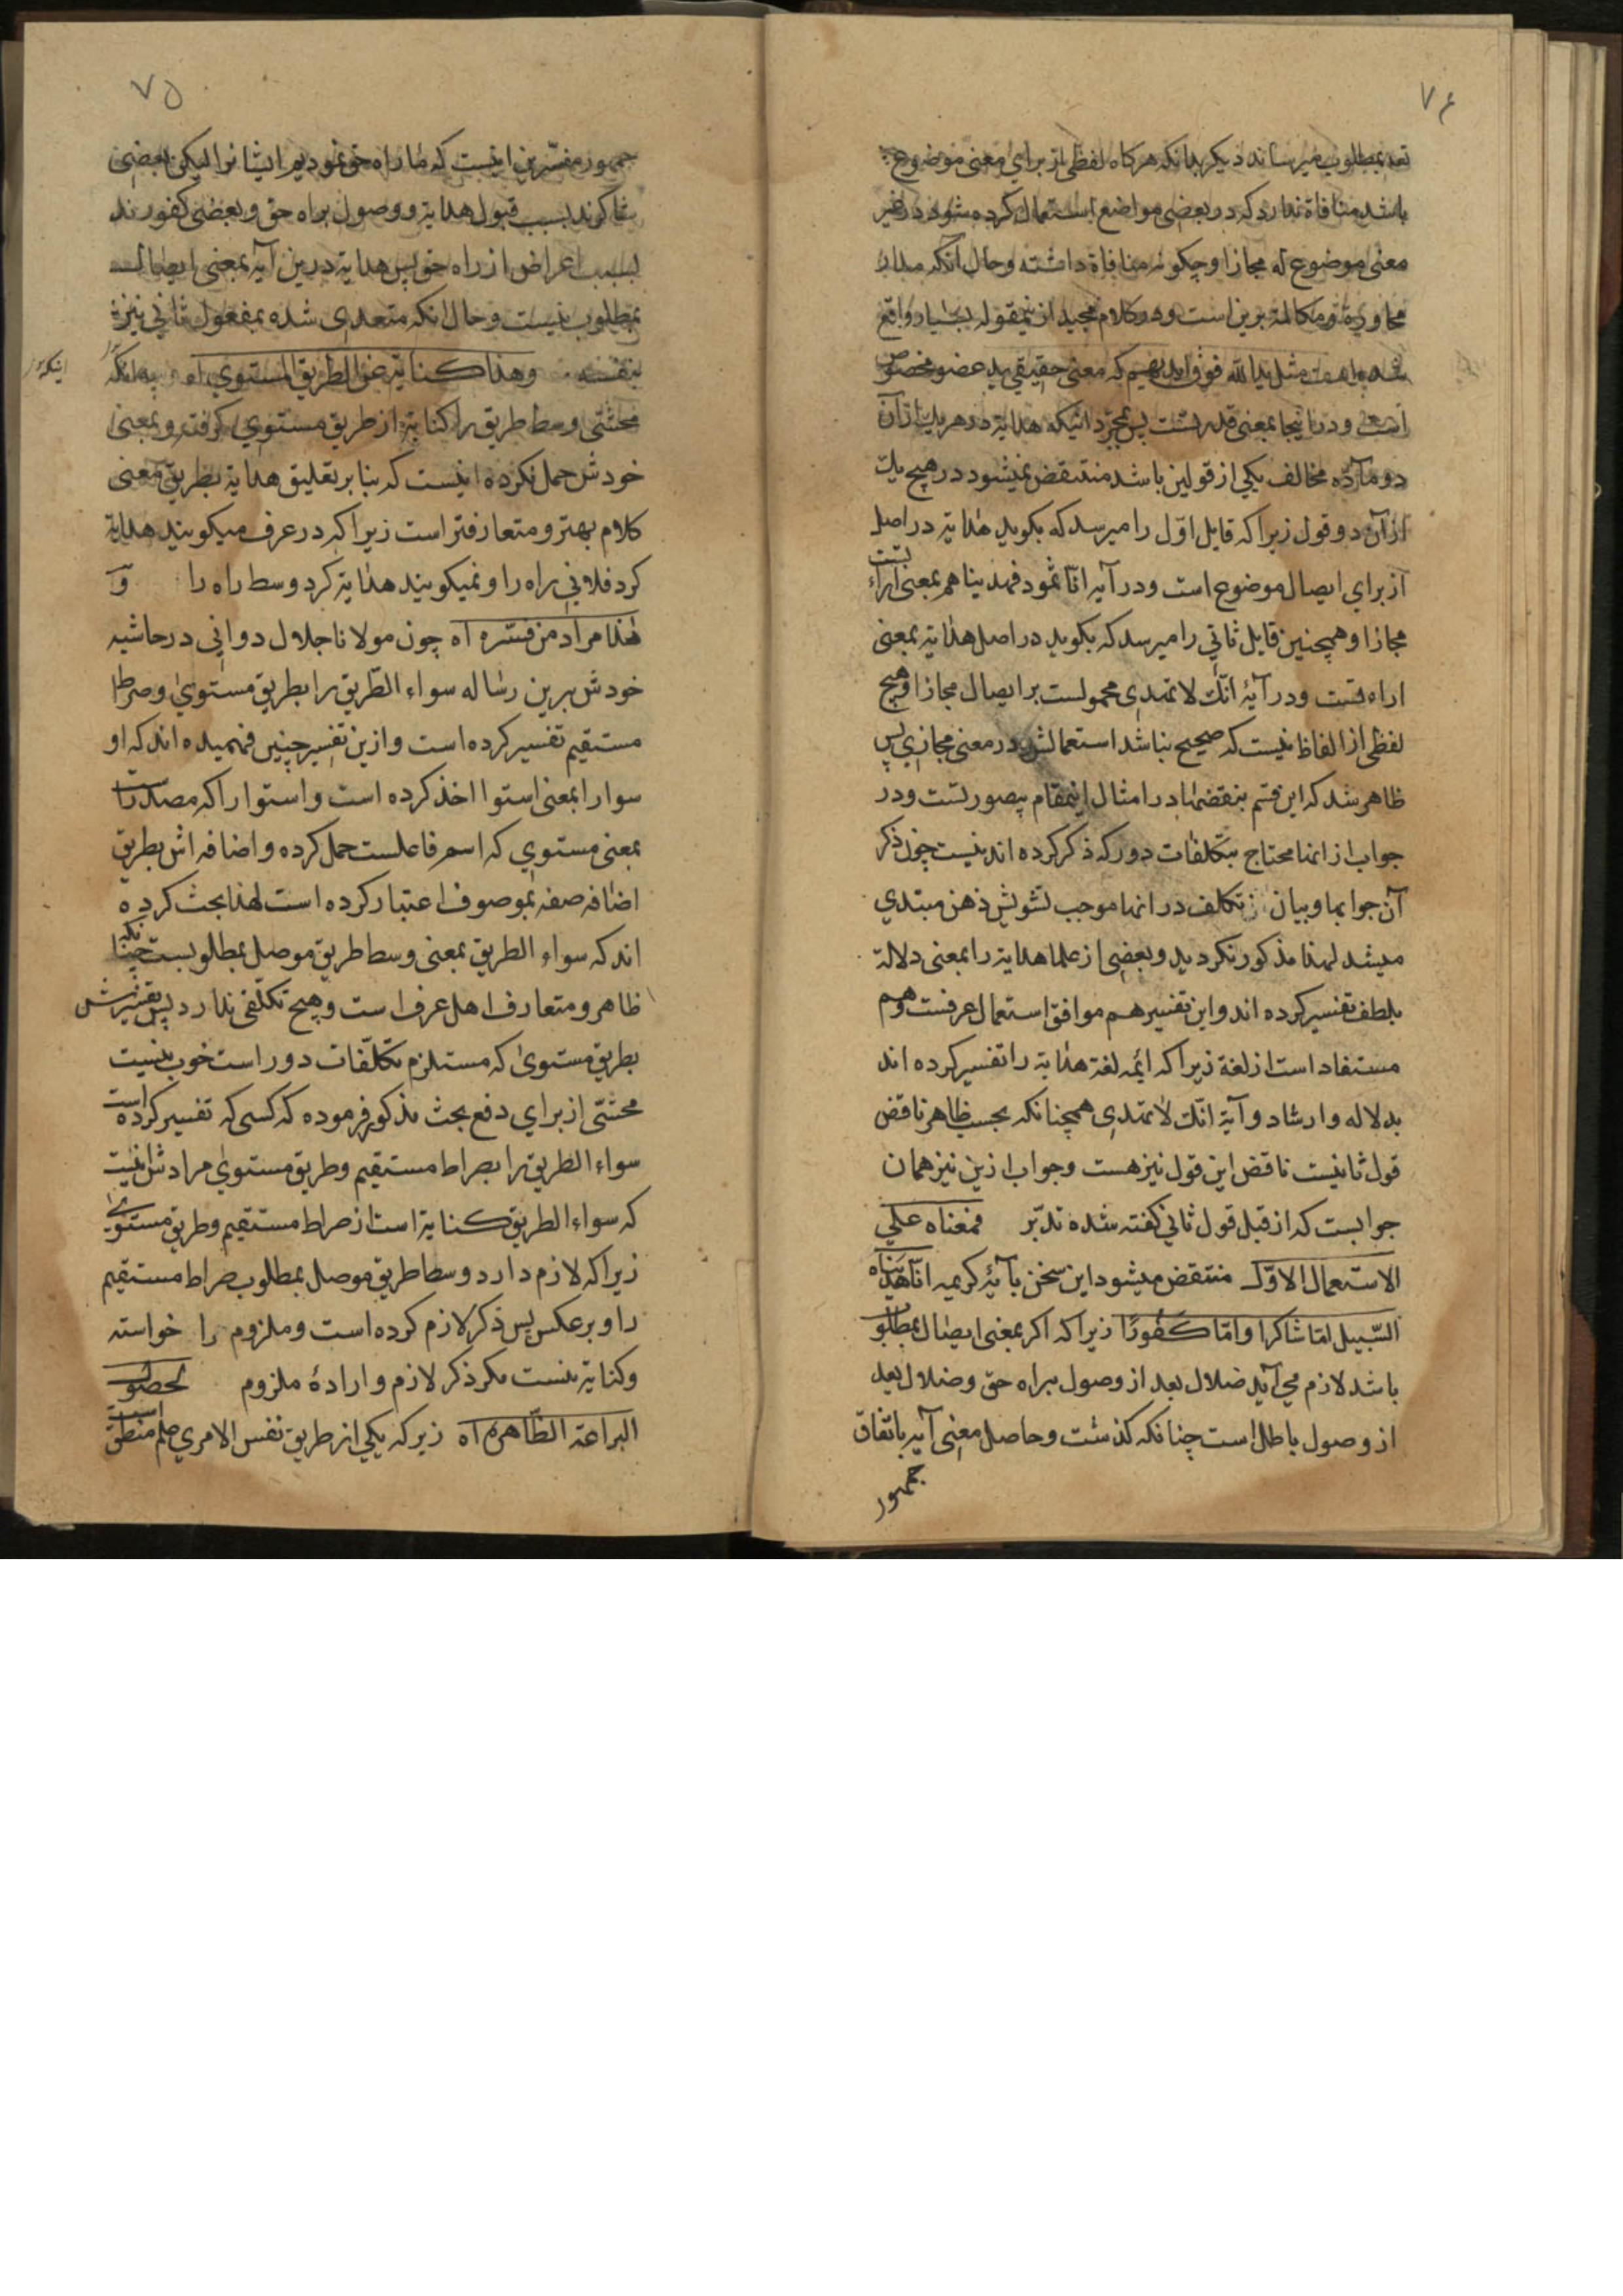 ۷۴
تعد بمطلوب میرساند دیکر بدانکه هرکاه لفظی از برای معنی موضوع
باشد منافاة ندارد که در بعضی مواضع استعمال کرده شود در غیر
معنی موضوع له مجازا و چکونه منافاة داشته و حال آنکه مدار
محاوره و مکالمه برین است و در کلام مجید از نیمقوله بسیار واقع
شده است مثل ید الله فوق ایدیهم که معنی حقیقی ید عضو مخصوص
است و در اینجا بمعنی قدرتست پس بمجرد اینکه هدایة در هر یك از آن
دو ماده مخالف یکی از قولین باشد منتقض نمیشود در هیچ یك
از آن دو قول زیرا که قایل اول را میرسد که بکوید هدایة در اصل
از برای ایصال موضوع است و در آیه اما ثمود فهدیناهم بمعنی اراءتست
مجازا و همچنین قایل ثانی را میرسد که بکوید در اصل هدایة بمعنی
اراءتست و در آیۀ انك لا تهدی محمولست بر ایصال مجازا و هیچ
لفظی از الفاظ نیست که صحیح نباشد استعمالش در معنی مجازی پس
ظاهر شد که این قسم نقضها در امثال اینمقام بیصورتست و در
جواب از انها محتاج بتکلفات دور که ذکر کرده اند نیست چون ذکر
آن جوابها و بیان تکلف در انها موجب تشویش ذهن مبتدی
میشد لهذا مذکور نکردید و بعضی از علما هدایة را بمعنی دلالة
بلطف تفسیر کرده اند و این تفسیر هم موافق استعمال عرفست و هم
مستفاد است از لغة زیرا که ایمه لغة هدایة را تفسیر کرده اند
بدلاله و ارشاد و آیة انك لا تهدی همچنانکه بحسب ظاهر ناقض
قول ثانیست ناقض این قول نیز هست و جواب ازین نیز همان
جوابست که از قبل قول ثانی کفته شده تدبر فمعناه علی
الاستعمال الاول منتقض میشود این سخن بآیۀ کریمه انا هدیناه
السبیل اما شاکرا و اما کفورا زیرا که اکر بمعنی ایصال بمطلوب
باشد لازم می آید ضلال بعد از وصول براه حق و ضلال بعد
از وصول باطل است چنانکه کذشت و حاصل معنی آیه باتفاق
جمهور
۷۵
جمهور مفسرین اینست که ما راه حق نمودیم ایشانرا لیکن بعضی
شاکرند بسبب قبول هدایة و وصول براه حق و بعضی کفورند
بسبب اعراض از راه حق پس هدایة درین آیه بمعنی ایصال
بمطلوب نیست و حال انکه متعدی شده بمفعول ثانی نیز
بنفسه وهذا کنایة عن الطریق المستوی اه بدانکه
اینکه
محشی وسط طریق را کنایة از طریق مستوی کرفته و بمعنی
خودش حمل نکرده اینست که بنا بر تعلیق هدایة بطریق معنی
کلام بهتر و متعارفتر است زیرا که در عرف میکویند هدایة
کرد فلانی راه را و نمیکویند هدایة کرد وسط راه را و
هذا مراد من فسره اه چون مولانا جلال دوانی در حاشیه
خودش برین رساله سواء الطریق را بطریق مستوی و صراط
مستقیم تفسیر کرده است و ازین تفسیر چنین فهمیده اند که او
سوا را بمعنی استوا اخذ کرده است و استوا را که مصدرست
بمعنی مستوی که اسم فاعلست حمل کرده و اضافه اش بطریق
اضافه صفه بموصوف اعتبار کرده است لهذا بحث کرده
اند که سواء الطریق بمعنی وسط طریق موصل بمطلوبست چنانکه
ظاهر و متعارف اهل عرف است و هیچ تکلفی ندارد پس تفسیرش
بطریق مستوی که مستلزم تکلفات دور است خوب نیست
محشی از برای دفع بحث مذکور فرموده که کسی که تفسیر کرده است
سواء الطریق را بصراط مستقیم و طریق مستوی مرادش اینست
که سواء الطریق کنایة است از صراط مستقیم و طریق مستوی
زیرا که لازم دارد وسط طریق موصل بمطلوب صراط مستقیم
را و برعکس پس ذکر لازم کرده است و ملزوم را خواسته
و کنایة نیست مکر ذکر لازم و ارادۀ ملزوم لحصول
البراعة الظاهرة اه زیرکه یکی از طریق نفس الامری علم منطق است